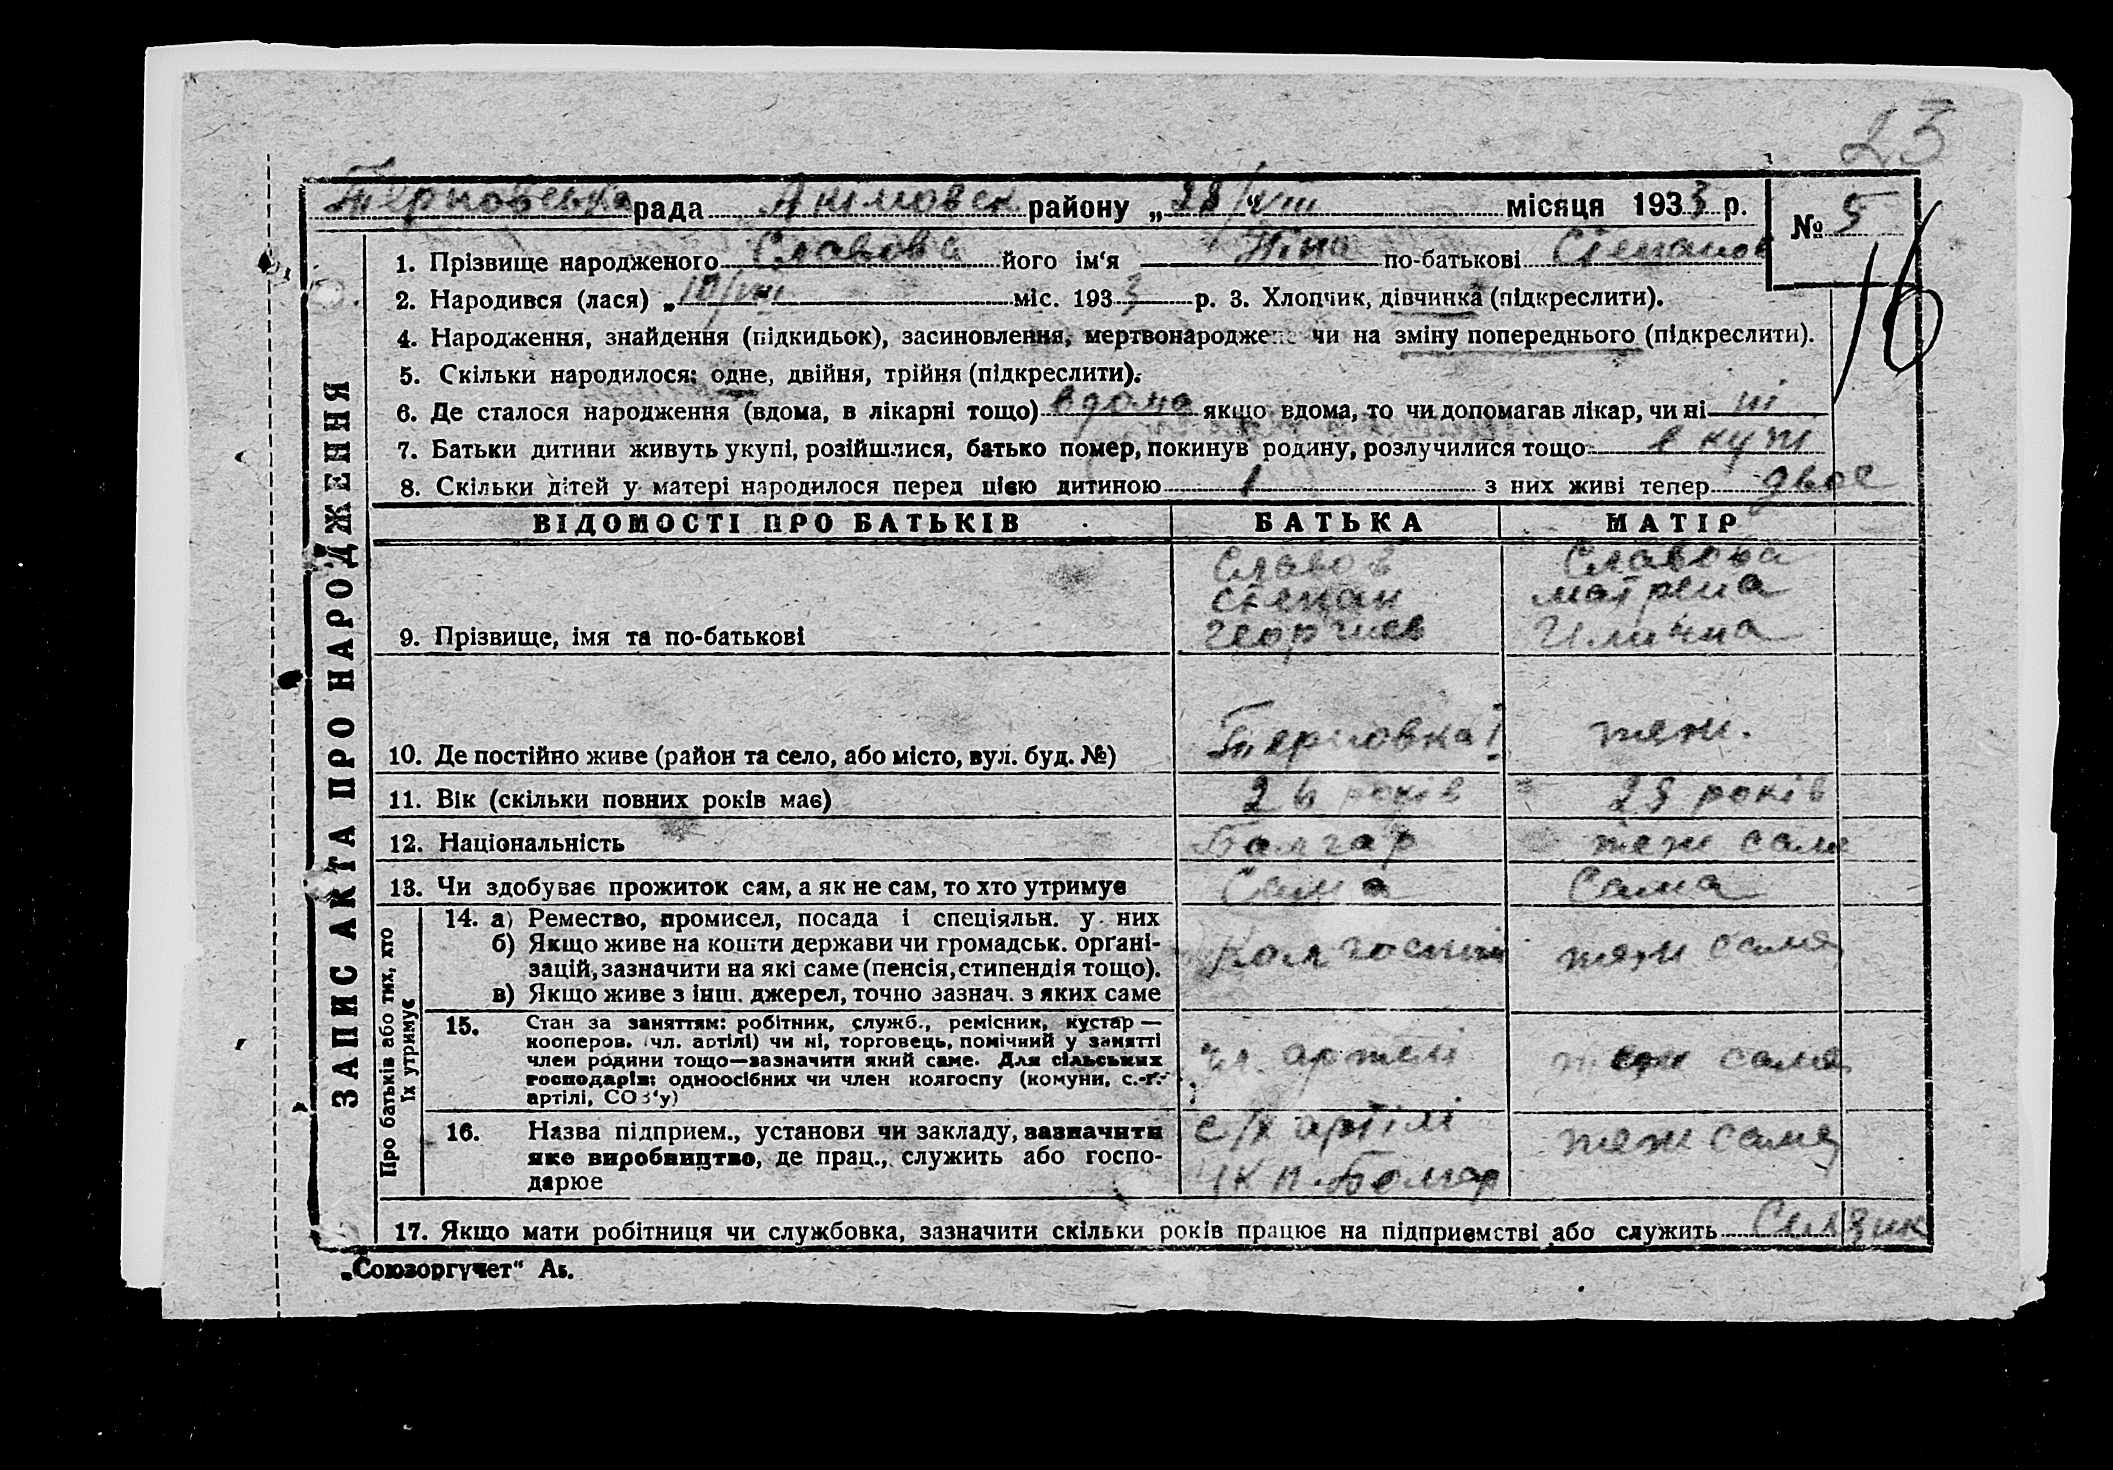 23
Терновська рада Акимовск району „28/VIII місяця 1933 р. № 5
16
ЗАПИС АКТА ПРО НАРОДЖЕННЯ
1. Прізвище народженого Славова його ім'я Ніна по-батькові Степанов
2. Народився (лася) „10/VIII міс. 1933 р. 3. Хлопчик, дівчинка (підкреслити).
4. Народження, знайдення (підкидьок), засиновлення, мертвонароджене чи на зміну попереднього (підкреслити).
5. Скільки народилося: одне, двійня, трійня (підкреслити).
6. Де сталося народження (вдома, в лікарні тощо) вдома якщо вдома, то чи допомагав лікар, чи ні ні
7. Батьки дитини живуть укупі, розійшлися, батько помер, покинув родину, розлучилися тощо в купі
8. Скільки дітей у матері народилося перед цією дитиною 1 з них живі тепер двое
ВІДОМОСТІ ПРО БАТЬКІВ БАТЬКА МАТІР
Славов Славова
Степан Матрена
9. Прізвище, імя та по-батькові Георгиев Илична
10. Де постійно живе (район та село, або місто, вул. буд. №) Терновка теж.
11. Вік (скільки повних років має) 26 років 28 років
12. Національність Болгар теж саме
13. Чи здобуває прожиток сам, а як не сам, то хто утримує Сам Сама
Про батьків або тих, хто їх утримує
14. а) Ремество, промисел, посада і спеціяльн. у них
б) Якщо живе на кошти держави чи громадськ. орґані- Колгоспник теж саме
зацій, зазначити на які саме (пенсія, стипендія тощо).
в) Якщо живе з інш. джерел, точно зазнач. з яких саме
15. Стан за заняттям: робітник, служб., ремісник, кустар —
кооперов. (чл. артілі) чи ні, торговець, помічний у занятті
член родини тощо—зазначити який саме. Для сільських чл. артелі теж саме
господарів: одноосібних чи член колгоспу (комуни, с.-г.-
артілі, СОЗ'у)
16. Назва підприєм., установи чи закладу, зазначити с/х артілі теж саме
яке виробництво, де прац., служить або госпо- ЧКП. Болгар
дарює
17. Якщо мати робітниця чи службовка, зазначити скільки років працює на підприємстві або служить
„Союзоргучет" А₅.